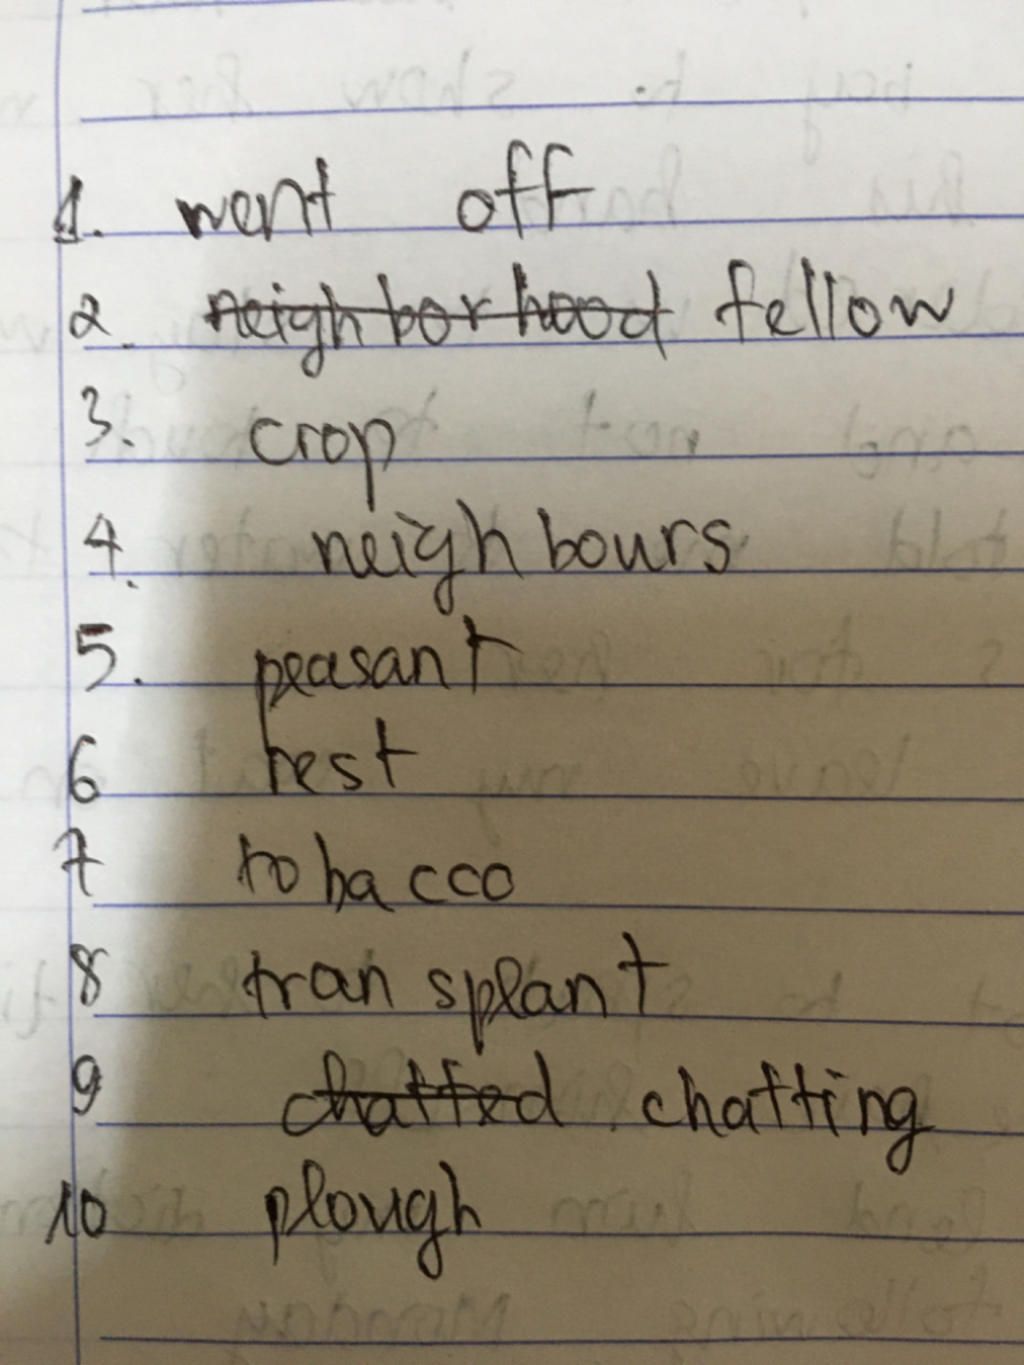 1. went off
2. neighborhood fellow
3. crop
4. neighbours
5. peasant
6 rest
7 tobacco
8 transplant
9 chatted chatting
10 plough